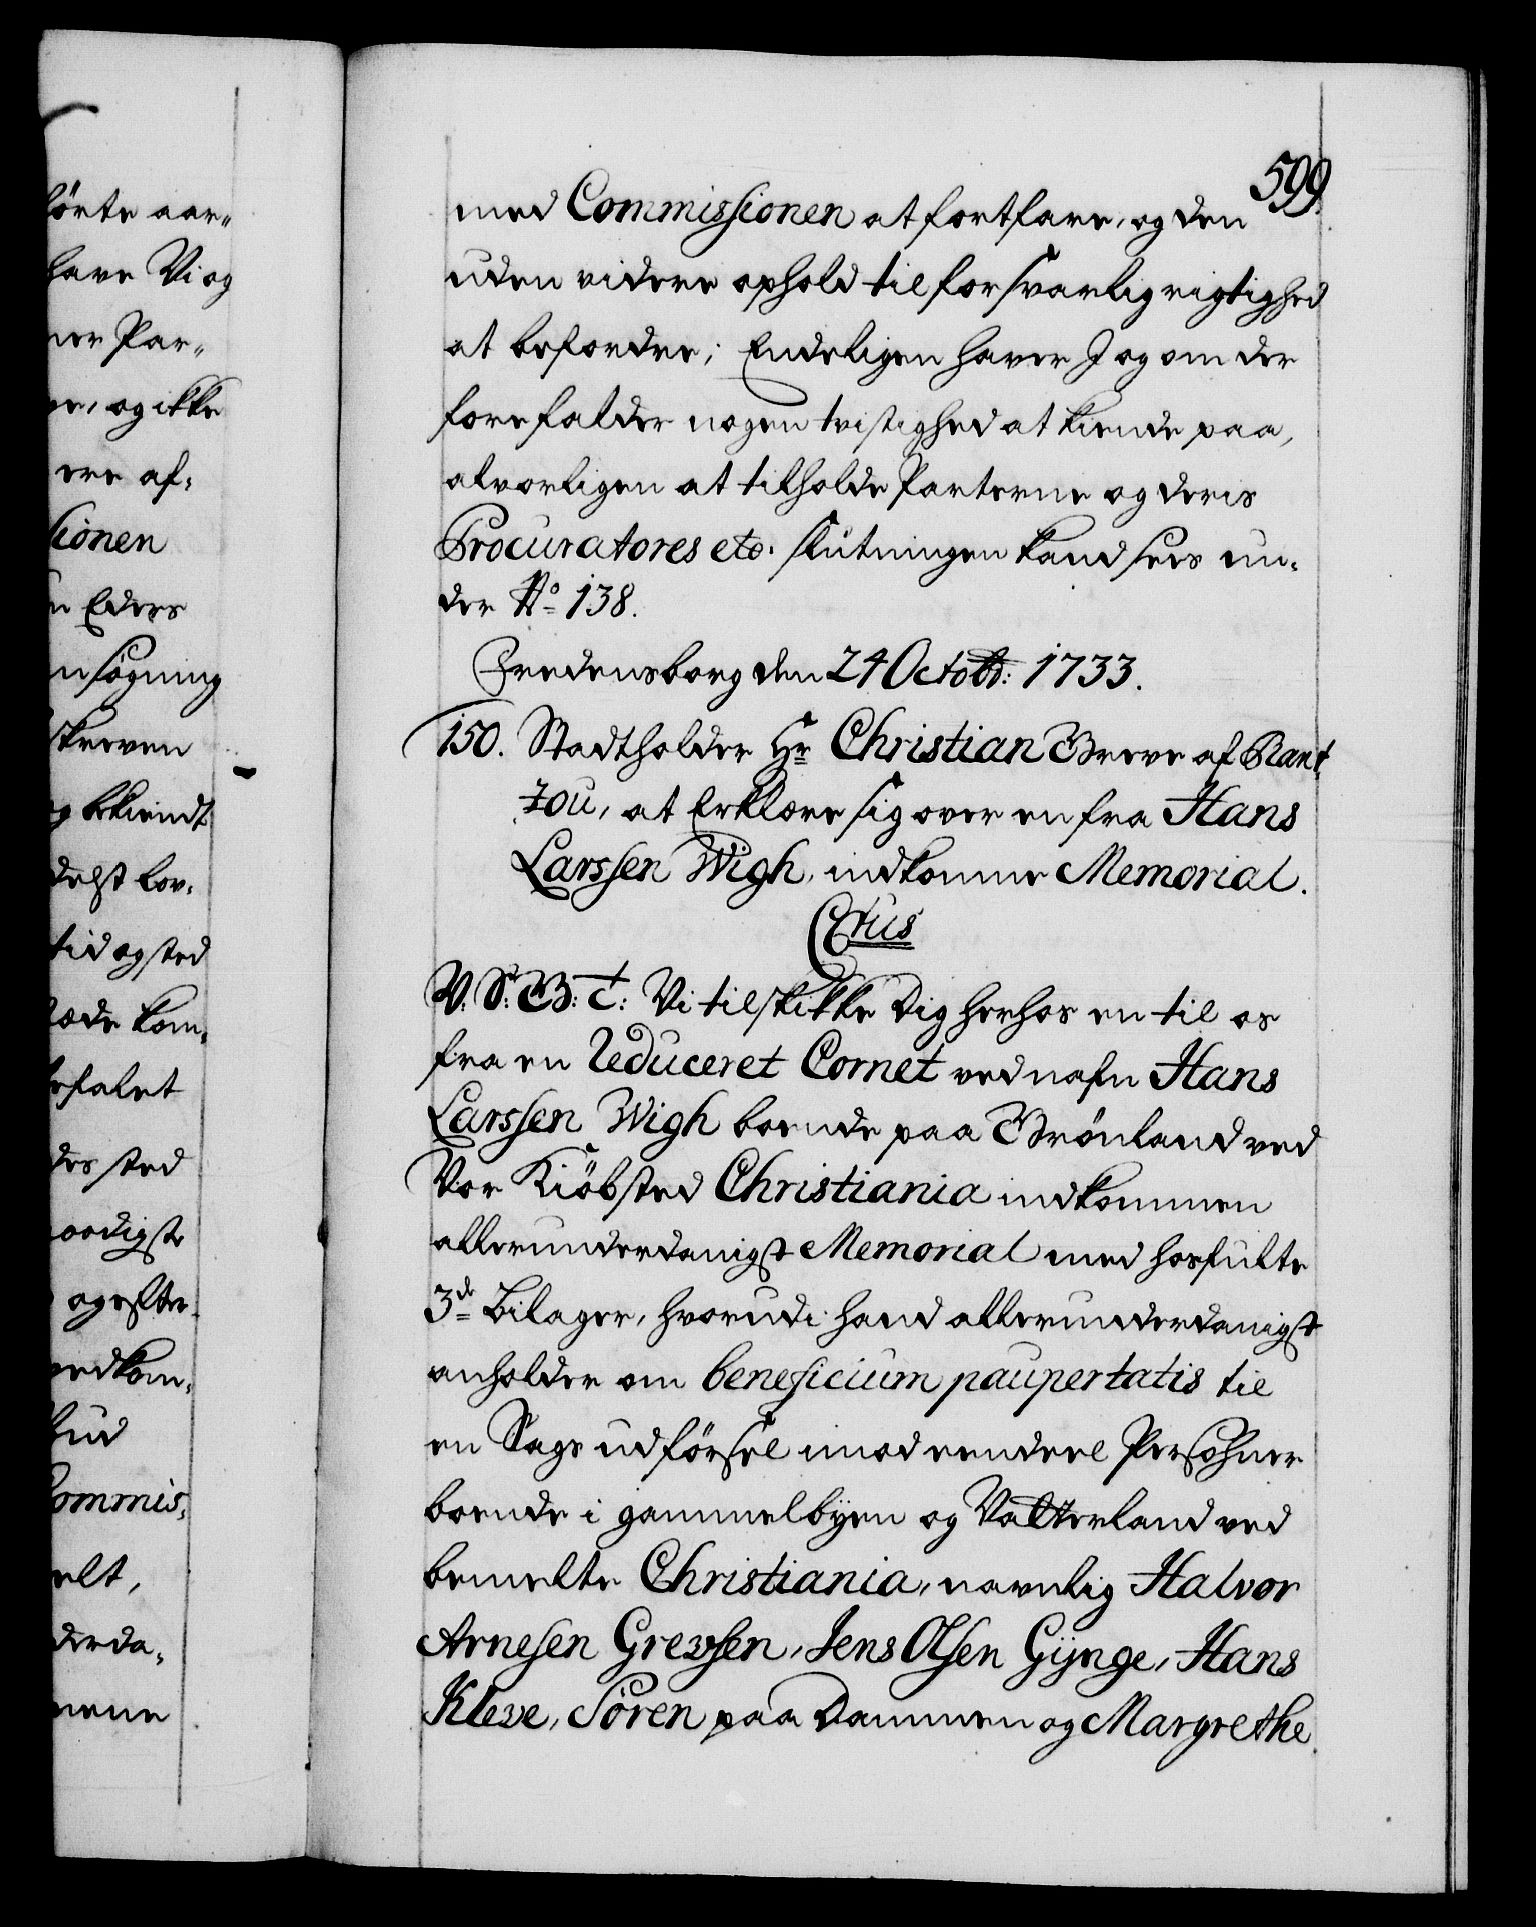 599.
med Commissionen at fortfare, og den
uden videre ophold til forsvarlig rigtighed
at befordre; Endeligen haver I og om der
forefalder nogen tvistighed at kiende paa,
alvorligen at tilholde Parterne og deris
Procuratores etc. slutningen kand sees un-
der No 138.
Fredensborg den 24 Octobr: 1733.
150. Stadtholder Hr Christian Greve af Rant
zou, at Erklære sig over en fra Hans
Larssen Wigh, indkomne Memorial.
Ctus
V. S: G: T: Vi tilskikke Dig herhos en til os
fra en Reduceret Cornet ved nafn Hans
Larssen Wigh boende paa Grönland ved
Vor Kiöbsted Christiania indkommen
allerunderdanigst Memorial med hosfulte
3de Bilager, hvorudi hand allerunderdanigst
anholder om beneficium paupertatis til
en Sags udförsel imod eendeel Persohner
boende i gammelbyen og Vatterland ved
bemelte Christiania, navnlig Halvor
Arnesen Grevsen, Jens Olsen Gynge, Hans
Kleve, Sören paa Dammen og Margrethe
förte aar-
have Vi og
ner Par-
og ikke
ere af-
sionen
Eders
nsögning
skreven
og bekiendt
delst lov-
tid og sted
kom-
befalet
des sted
og efter-
vedkom-
bud
Commis-
elt,
derda-